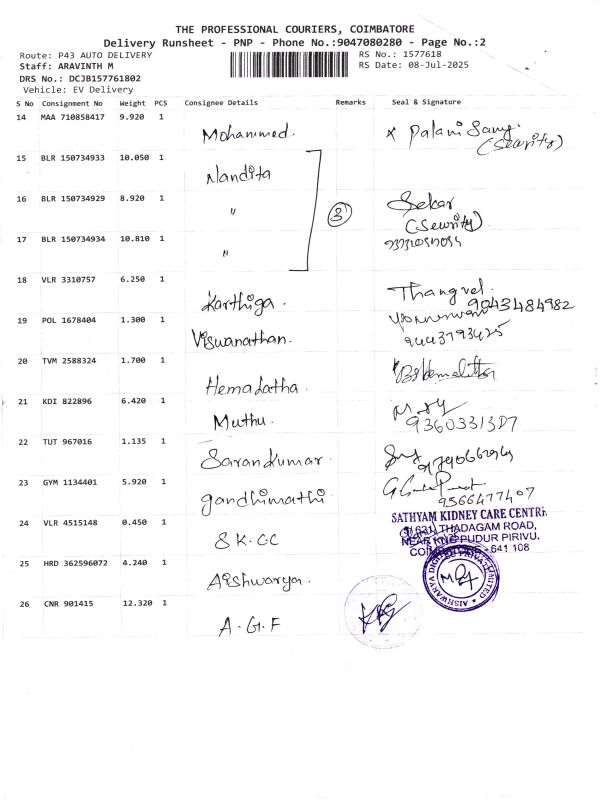 THE PROFESSIONAL COURIERS, COIMBATORE
Delivery Runsheet - PNP - Phone No.:9047080280 - Page No.:2
Route: P43 AUTO DELIVERY RS No.: 1577618
Staff: ARAVINTH M RS Date: 08-Jul-2025
DRS No.: DCJB157761802
Vehicle: EV Delivery
S No Consignment No Weight PCS Consignee Details Remarks Seal & Signature
14 MAA 710858417 9.920 1
Mohammed. x Palani Samy.
(Searity)
15 BLR 150734933 10.050 1
Nandita
16 BLR 150734929 8.920 1
" 3 Sekar
(Sewrity)
17 BLR 150734934 10.810 1
"
18 VLR 3310757 6.250 1
Karthiga. Thangvel.
9043484982
19 POL 1678404 1.300 1
Viswanathan. 9443793425
20 TVM 2588324 1.700 1
Hemalatha
21 KDI 822896 6.420 1
Muthu. 9360331307
22 TUT 967016 1.135 1
Sarankumar
23 GYM 1134401 5.920 1
gandhimathi 9566477407
24 VLR 4515148 0.450 1
SATHYAM KIDNEY CARE CENTRE
THADAGAM ROAD,
PUDUR PIRIVU,
S K.CC 641 108
25 HRD 362596072 4.240 1
Aishwarya. AISHWARYA DIGITAL PRIVATE LIMITED
26 CNR 901415 12.320 1
A.G.F